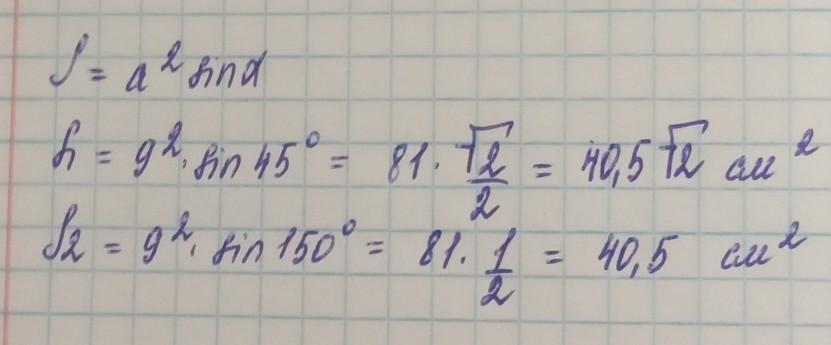 S = a² sinα
S₁ = 9² · sin 45° = 81 · √2/2 = 40,5 √2 см²
S₂ = 9² · sin 150° = 81 · 1/2 = 40,5 см²